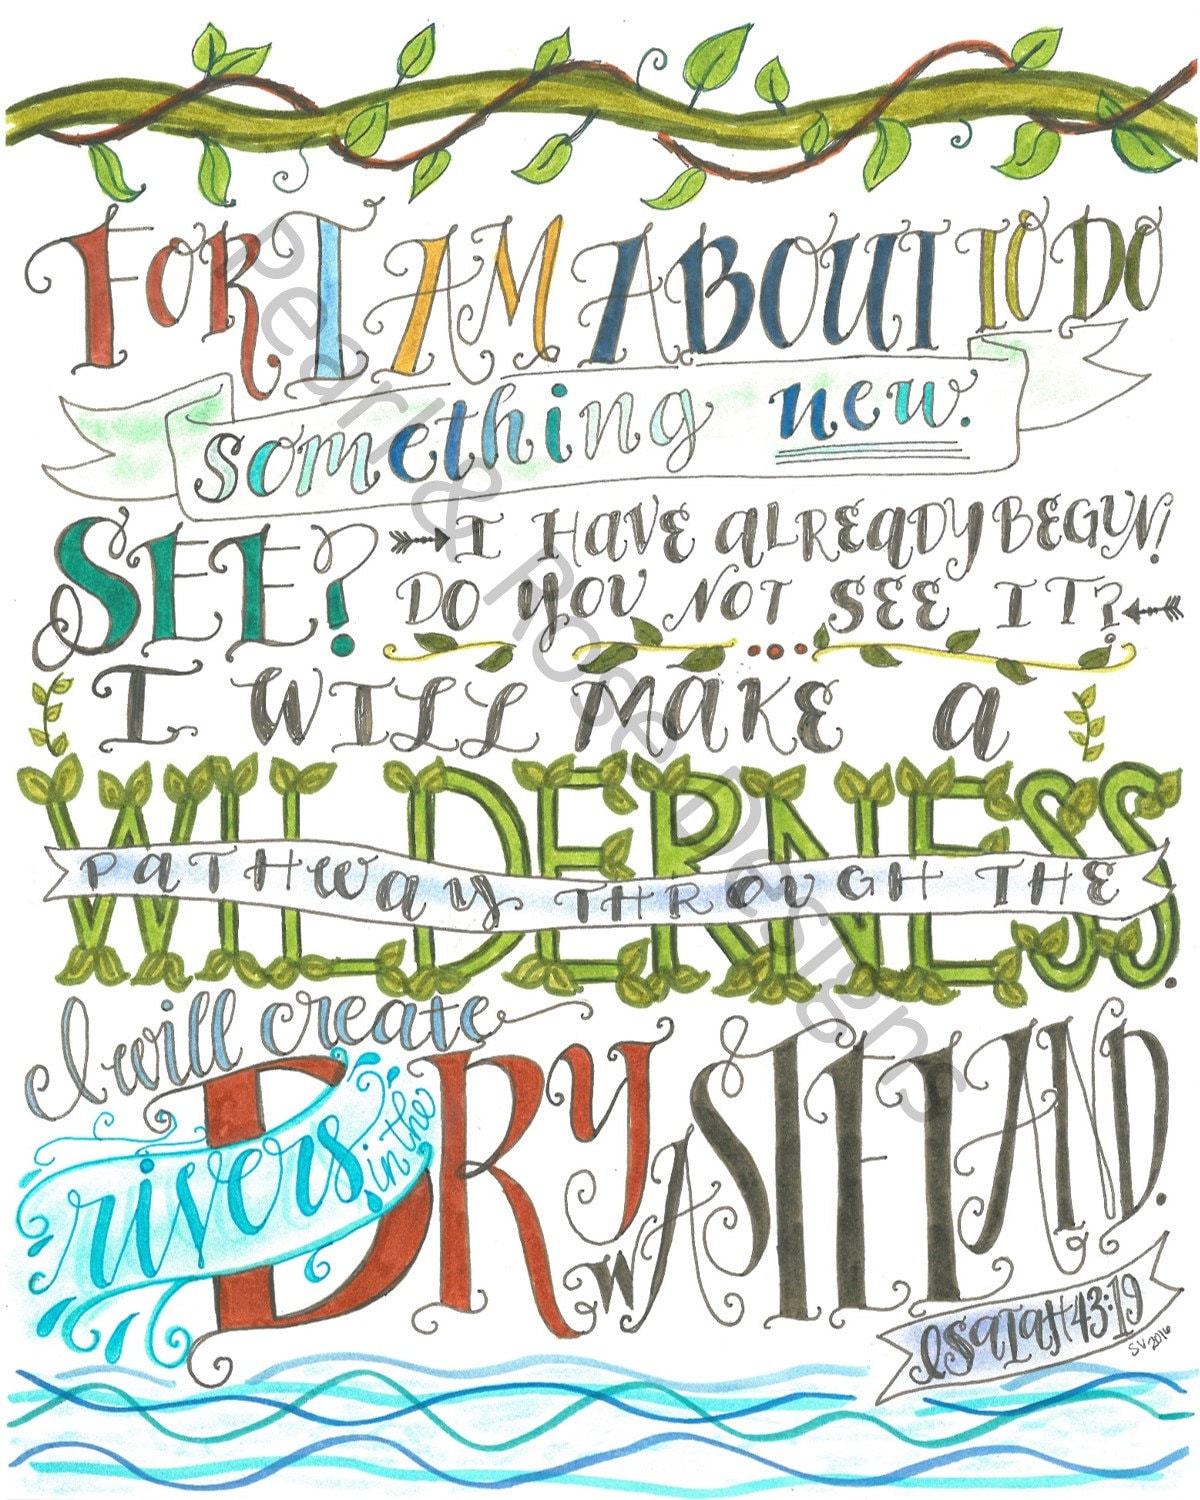 FOR I AM ABOUT TO DO
something new.
SEE! I HAVE ALREADY BEGUN!
DO YOU NOT SEE IT?
I WILL MAKE A
PATHWAY THROUGH THE
WILDERNESS.
I will create
rivers in the
DRY WASTELAND.
ISAIAH 43:19
SV 2016
Pearl & Rose Designs